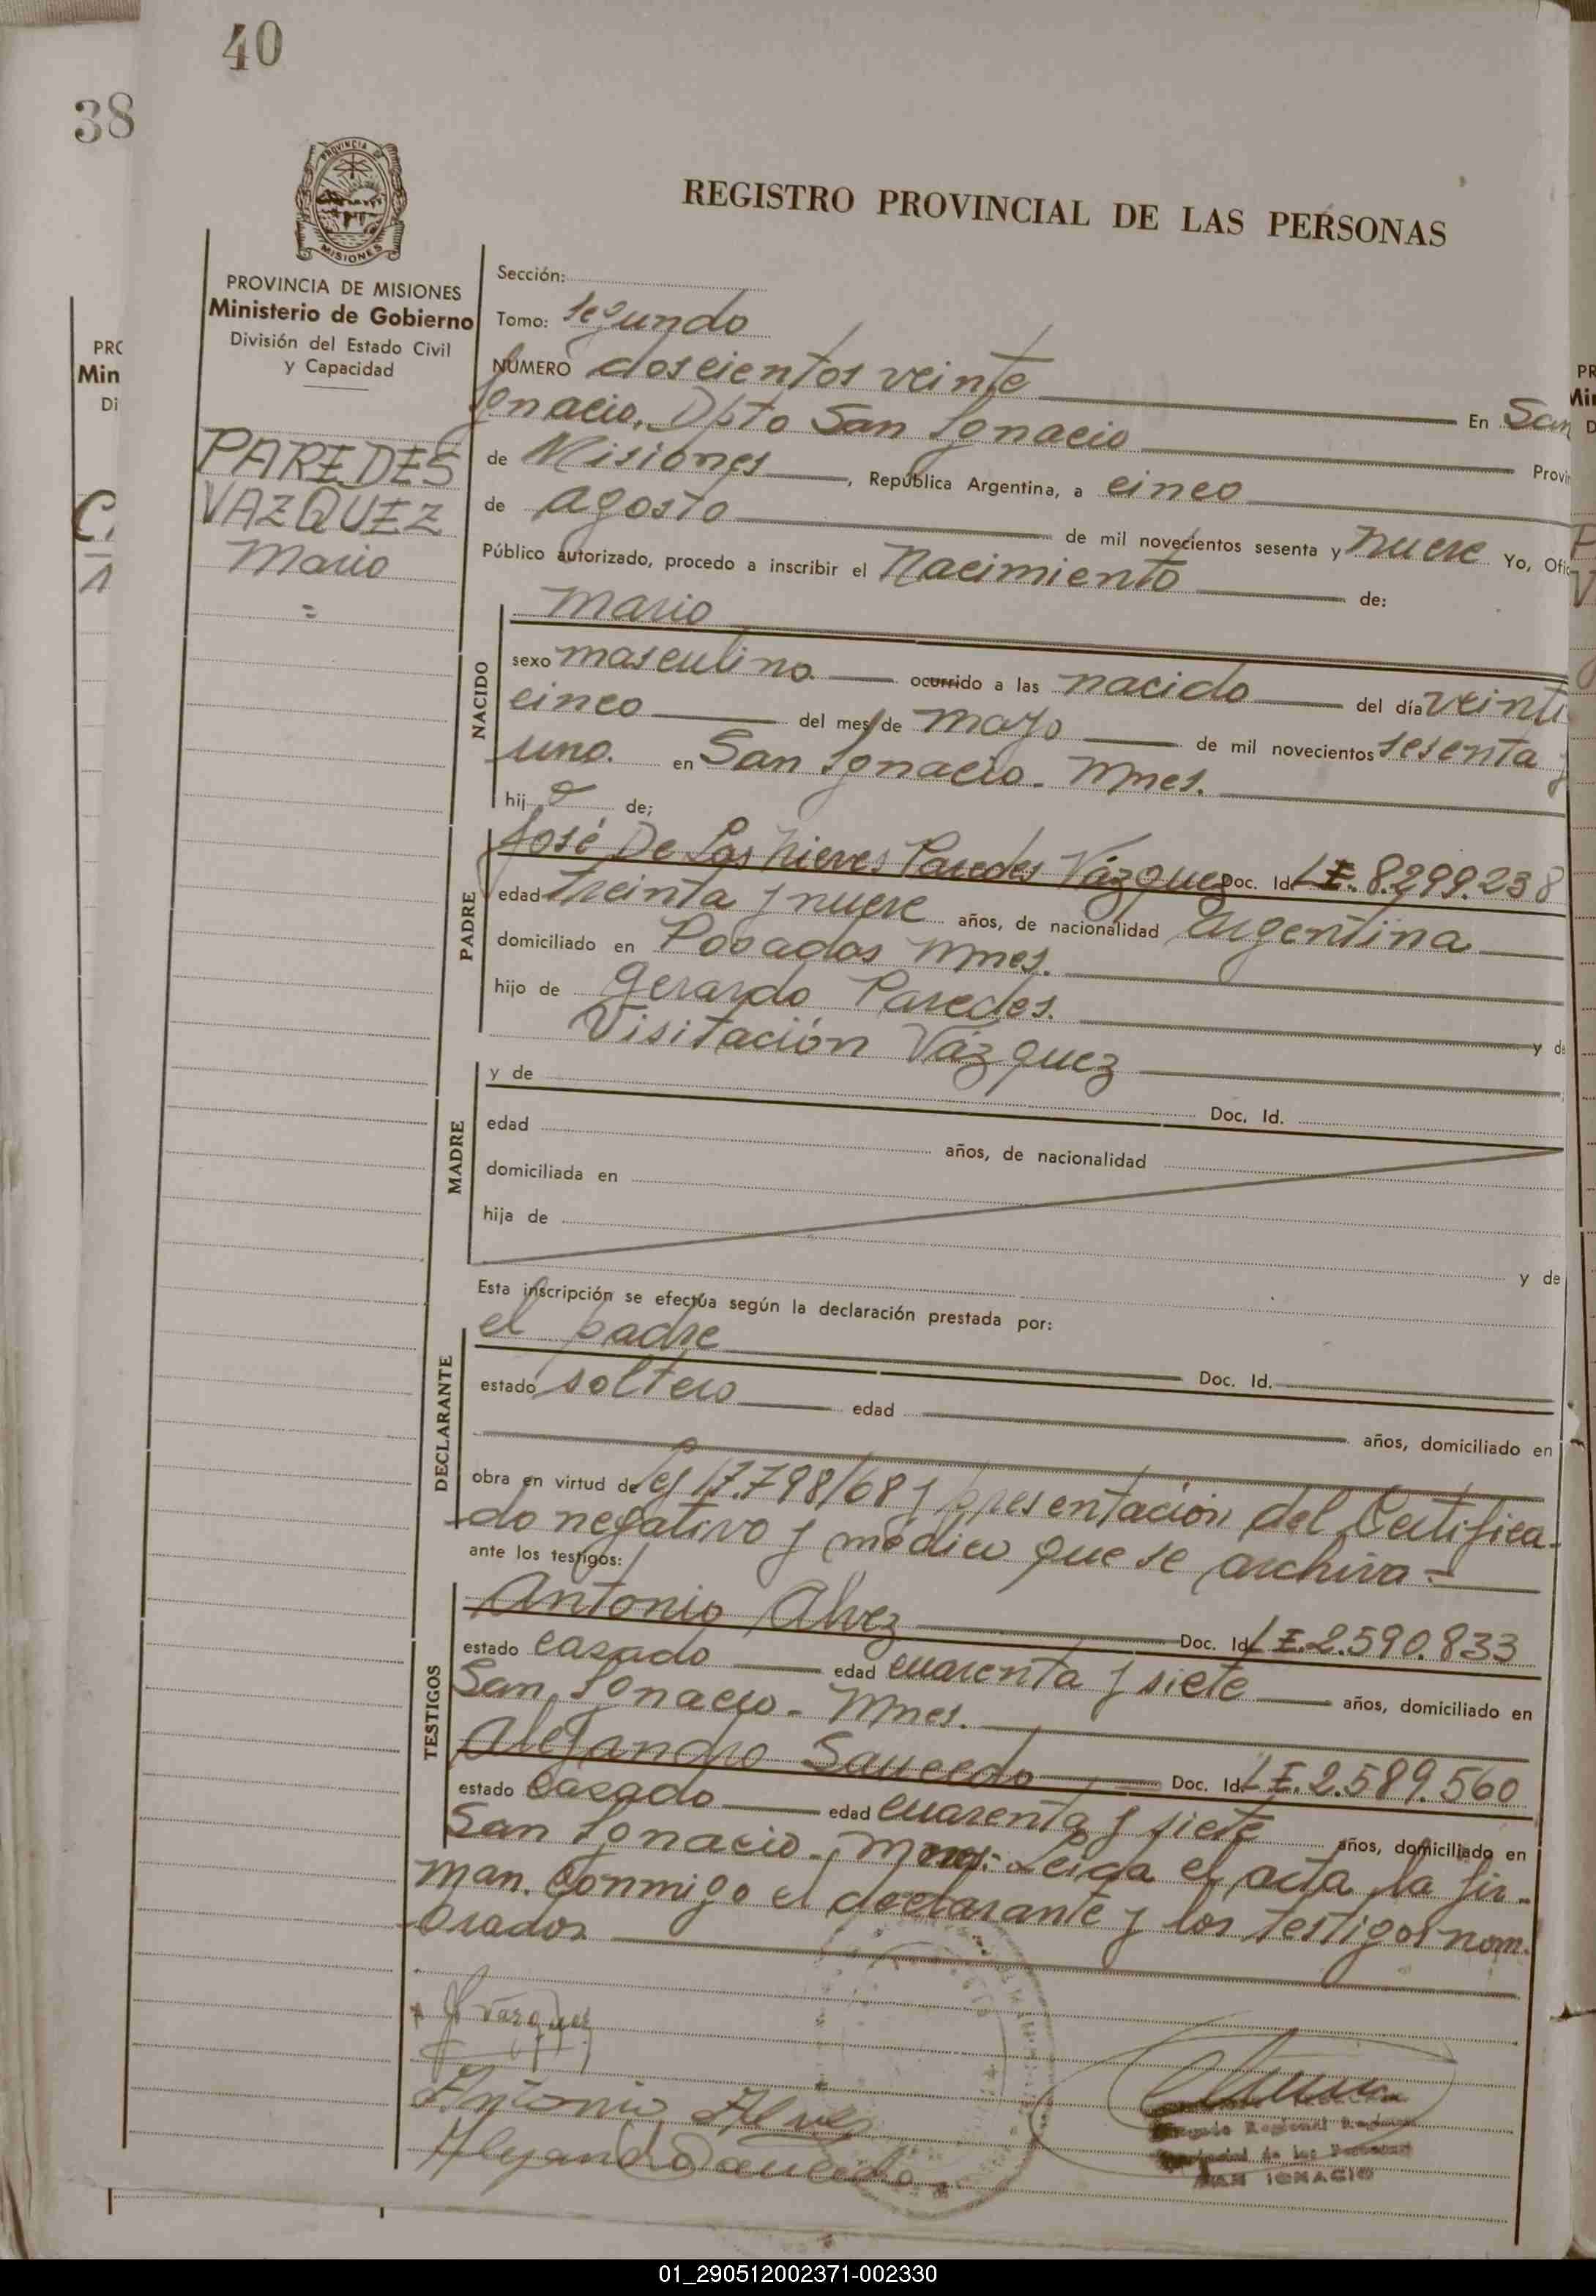 40
38
PROVINCIA DE MISIONES
REGISTRO PROVINCIAL DE LAS PERSONAS
PROVINCIA DE MISIONES
Ministerio de Gobierno
División del Estado Civil
y Capacidad
PAREDES
VAZQUEZ
Mario
=
Sección:
Tomo: Segundo
NÚMERO doscientos veinte En San
Ignacio, Dpto San Ignacio Provin
de Misiones, República Argentina, a cinco
de agosto de mil novecientos sesenta y nueve Yo, Ofic
Público autorizado, procedo a inscribir el Nacimiento de:
NACIDO
Mario
sexo masculino ocurrido a las nacido del día veinti
cinco del mes de mayo de mil novecientos sesenta y
uno. en San Ignacio - Mnes.
hijo de;
PADRE
José De Las Nieves Paredes Vázquez Doc. Id. L.E. 8.299.238
edad treinta y nueve años, de nacionalidad Argentina
domiciliado en Posadas Mnes.
hijo de Gerardo Paredes. y de
Visitación Vázquez
MADRE
y de Doc. Id.
edad años, de nacionalidad
domiciliada en
hija de y de
Esta inscripción se efectúa según la declaración prestada por:
DECLARANTE
el padre Doc. Id.
estado soltero edad años, domiciliado en
obra en virtud de Ley 17.798/68 y presentación del Certifica-
do negativo y médico que se archiva -
ante los testigos:
TESTIGOS
Antonio Alvez Doc. Id. L.E. 2.590.833
estado casado edad cuarenta y siete años, domiciliado en
San Ignacio - Mnes.
Alejandro Saucedo Doc. Id. L.E. 2.589.560
estado casado edad cuarenta y siete años, domiciliado en
San Ignacio - Mnes. Leida el acta, la fir-
man conmigo el declarante y los testigos nom-
brados
Vazquez
Antonio Alves
Alejandro Saucedo
SAN IGNACIO
01_290512002371-002330